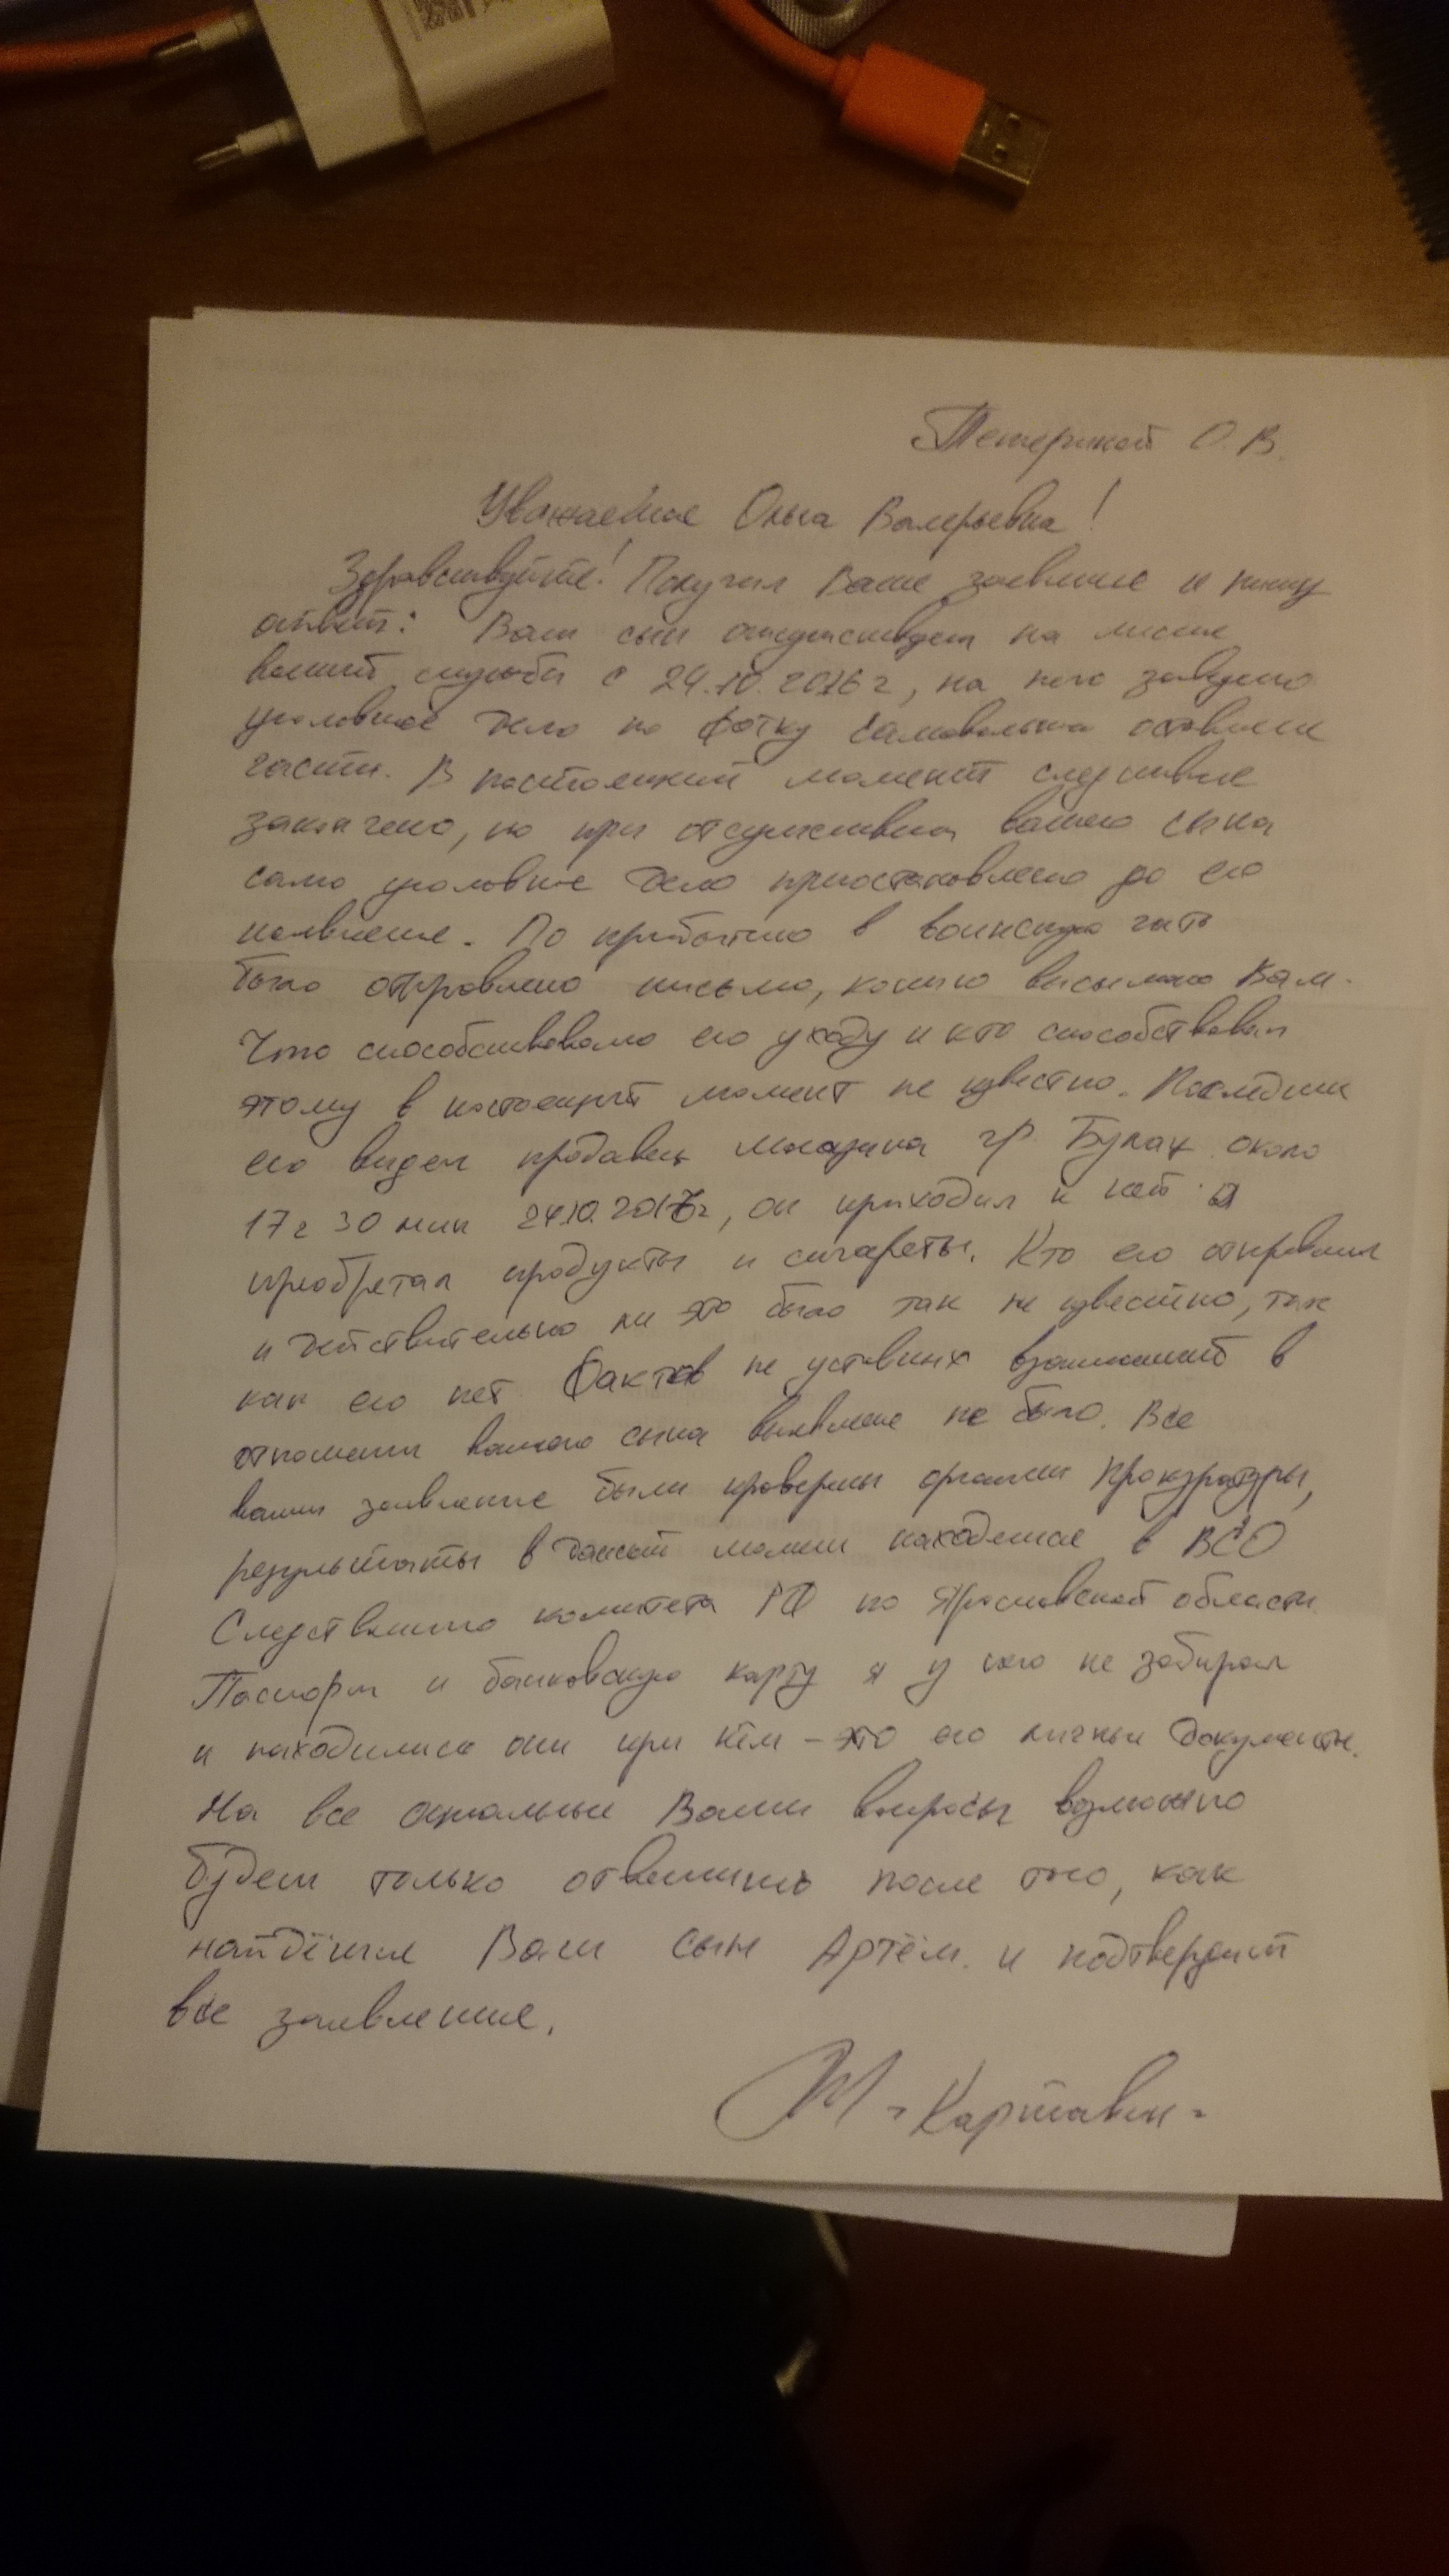 Петериной О. В.
Уважаемая Ольга Валерьевна!
Здравствуйте! Получил Ваше заявление и пишу
ответ: Ваш сын отсутствует на месте
военной службы с 24.10.2016 г, на него заведено
уголовное дело по факту самовольно оставление
части. В настоящий момент следствие
закончено, но при отсутствии вашего сына
само уголовное дело приостановлено до его
появление. По прибытию в воинскую часть
было отправлено письмо, копию высылаю Вам.
Что способствовало его уходу и кто способствовал
этому в настоящий момент не известно. Последним
его видел продавец магазина гр. около
17 г 30 мин 24.10.2016г, он приходил к ней и
приобретал продукты и сигареты. Кто его отправил
и действительно ли это было так не известно, так
как его нет. Фактов не уставных взаимоотношений в
отношении вашего сына выявлено не было. Все
ваши заявление были проверены органами прокуратуры,
результаты в данный момент находятся в ВСО
Следственного комитета РФ по Ярославской области.
Паспорт и банковскую карту я у него не забирал
и находились они при нём – это его личные документы.
На все остальные Ваши вопросы возможно
будет только ответить после того, как
найдётся Ваш сын Артём и подтвердит
все заявление.
- Картавин -